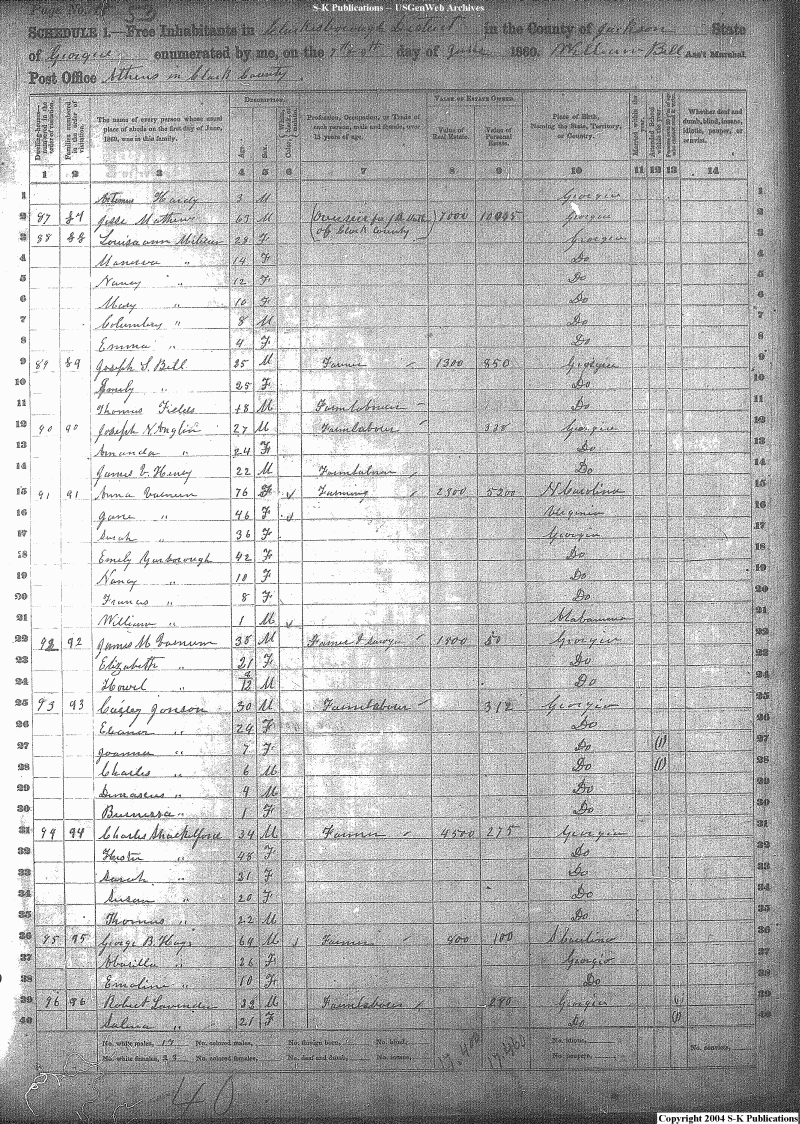 S-K Publications -- USGenWeb Archives
Page No. 53
SCHEDULE 1.—Free Inhabitants in Clarksborough District in the County of Jackson State
of Georgia enumerated by me, on the 7th & 9th day of June 1860. William Bell Ass't Marshal.
Post Office Athens in Clark County
Dwelling-houses—numbered in the order of visitation.
Families numbered in the order of visitation.
The name of every person whose usual place of abode on the first day of June, 1860, was in this family.
DESCRIPTION.
Age.
Sex.
Color, White, black, or mulatto.
Profession, Occupation, or Trade of each person, male and female, over 15 years of age.
VALUE OF ESTATE OWNED.
Value of Real Estate.
Value of Personal Estate.
Place of Birth, Naming the State, Territory, or Country.
Married within the year.
Attended School within the year.
Whether deaf and dumb, blind, insane, idiotic, pauper, or convict.
1 2 3 4 5 6 7 8 9 10 11 12 13 14
1 Hardy 3 M Georgia 1
2 87 87 Jesse Mathews 63 M (Overseer of Clark County) 7000 Georgia 2
3 88 88 Louisa ann 28 F Georgia 3
4 Manerva " 14 F Do 4
5 Nancy " 12 F Do 5
6 Mary " 10 F Do 6
7 Columbus " 8 M Do 7
8 Emma " 4 F Do 8
9 89 89 Joseph S. Bell 25 M Farmer 1300 850 Georgia 9
10 Emily " 25 F Do 10
11 Thomas Fields 18 M Farmlabourer Do 11
12 90 90 Joseph N Anglin 27 M Farmlabour Georgia 12
13 Amanda " 24 F Do 13
14 James V. Henry 22 M Farmlabour Do 14
15 91 91 Anna Varnum 76 F Farming 2300 5200 N Carolina 15
16 Jane " 46 F Virginia 16
17 Sarah " 36 F Georgia 17
18 Emily Yarborough 42 F Do 18
19 Nancy " 10 F Do 19
20 Francis " 8 F Do 20
21 William " 1 M Alabamma 21
22 92 92 James M Varnum 38 M Farmer & 1800 50 Georgia 22
23 Elizabeth " 21 F Do 23
24 Howel " 12 M Do 24
25 93 93 Jonson 30 M Farmlabour 312 Georgia 25
26 Eleanor " 29 F Do 26
27 Joanna " 7 F Do (1) 27
28 Charles " 6 M Do (1) 28
29 Damascus " 4 M Do 29
30 " 1 F Do 30
31 94 94 Charles Shackelford 34 M Farmer 4500 275 Georgia 31
32 Hester " 48 F Do 32
33 Sarah " 21 F Do 33
34 Susan " 20 F Do 34
35 Thomas " 22 M Do 35
36 95 95 George B. Hays 64 M Farmer 400 100 S Carolina 36
37 " 26 F Georgia 37
38 Emaline " 10 F Do 38
39 96 96 Robert Lavender 32 M Farmlabour Georgia (1) 39
40 " 21 F Do (1) 40
No. white males, 17 No. colored males, No. foreign born, No. blind, No. idiotic,
No. white females, 23 No. colored females, No. deaf and dumb, No. insane, No. paupers, No. convicts,
17,400 17,460
40
Copyright 2004 S-K Publications